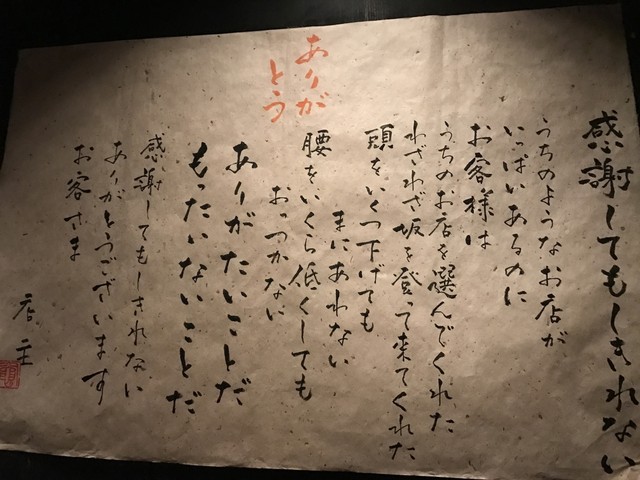 感謝してもしきれない
うちのようなお店が
いっぱいあるのに
お客様は
うちのお店を選んでくれた
わざわざ坂を登って来てくれた
頭をいくつ下げても
まにあわない
腰をいくら低くしても
おっつかない
ありがたいことだ
もったいないことだ
感謝してもしきれない
ありがとうございます
お客さま
店主
ありが
とう